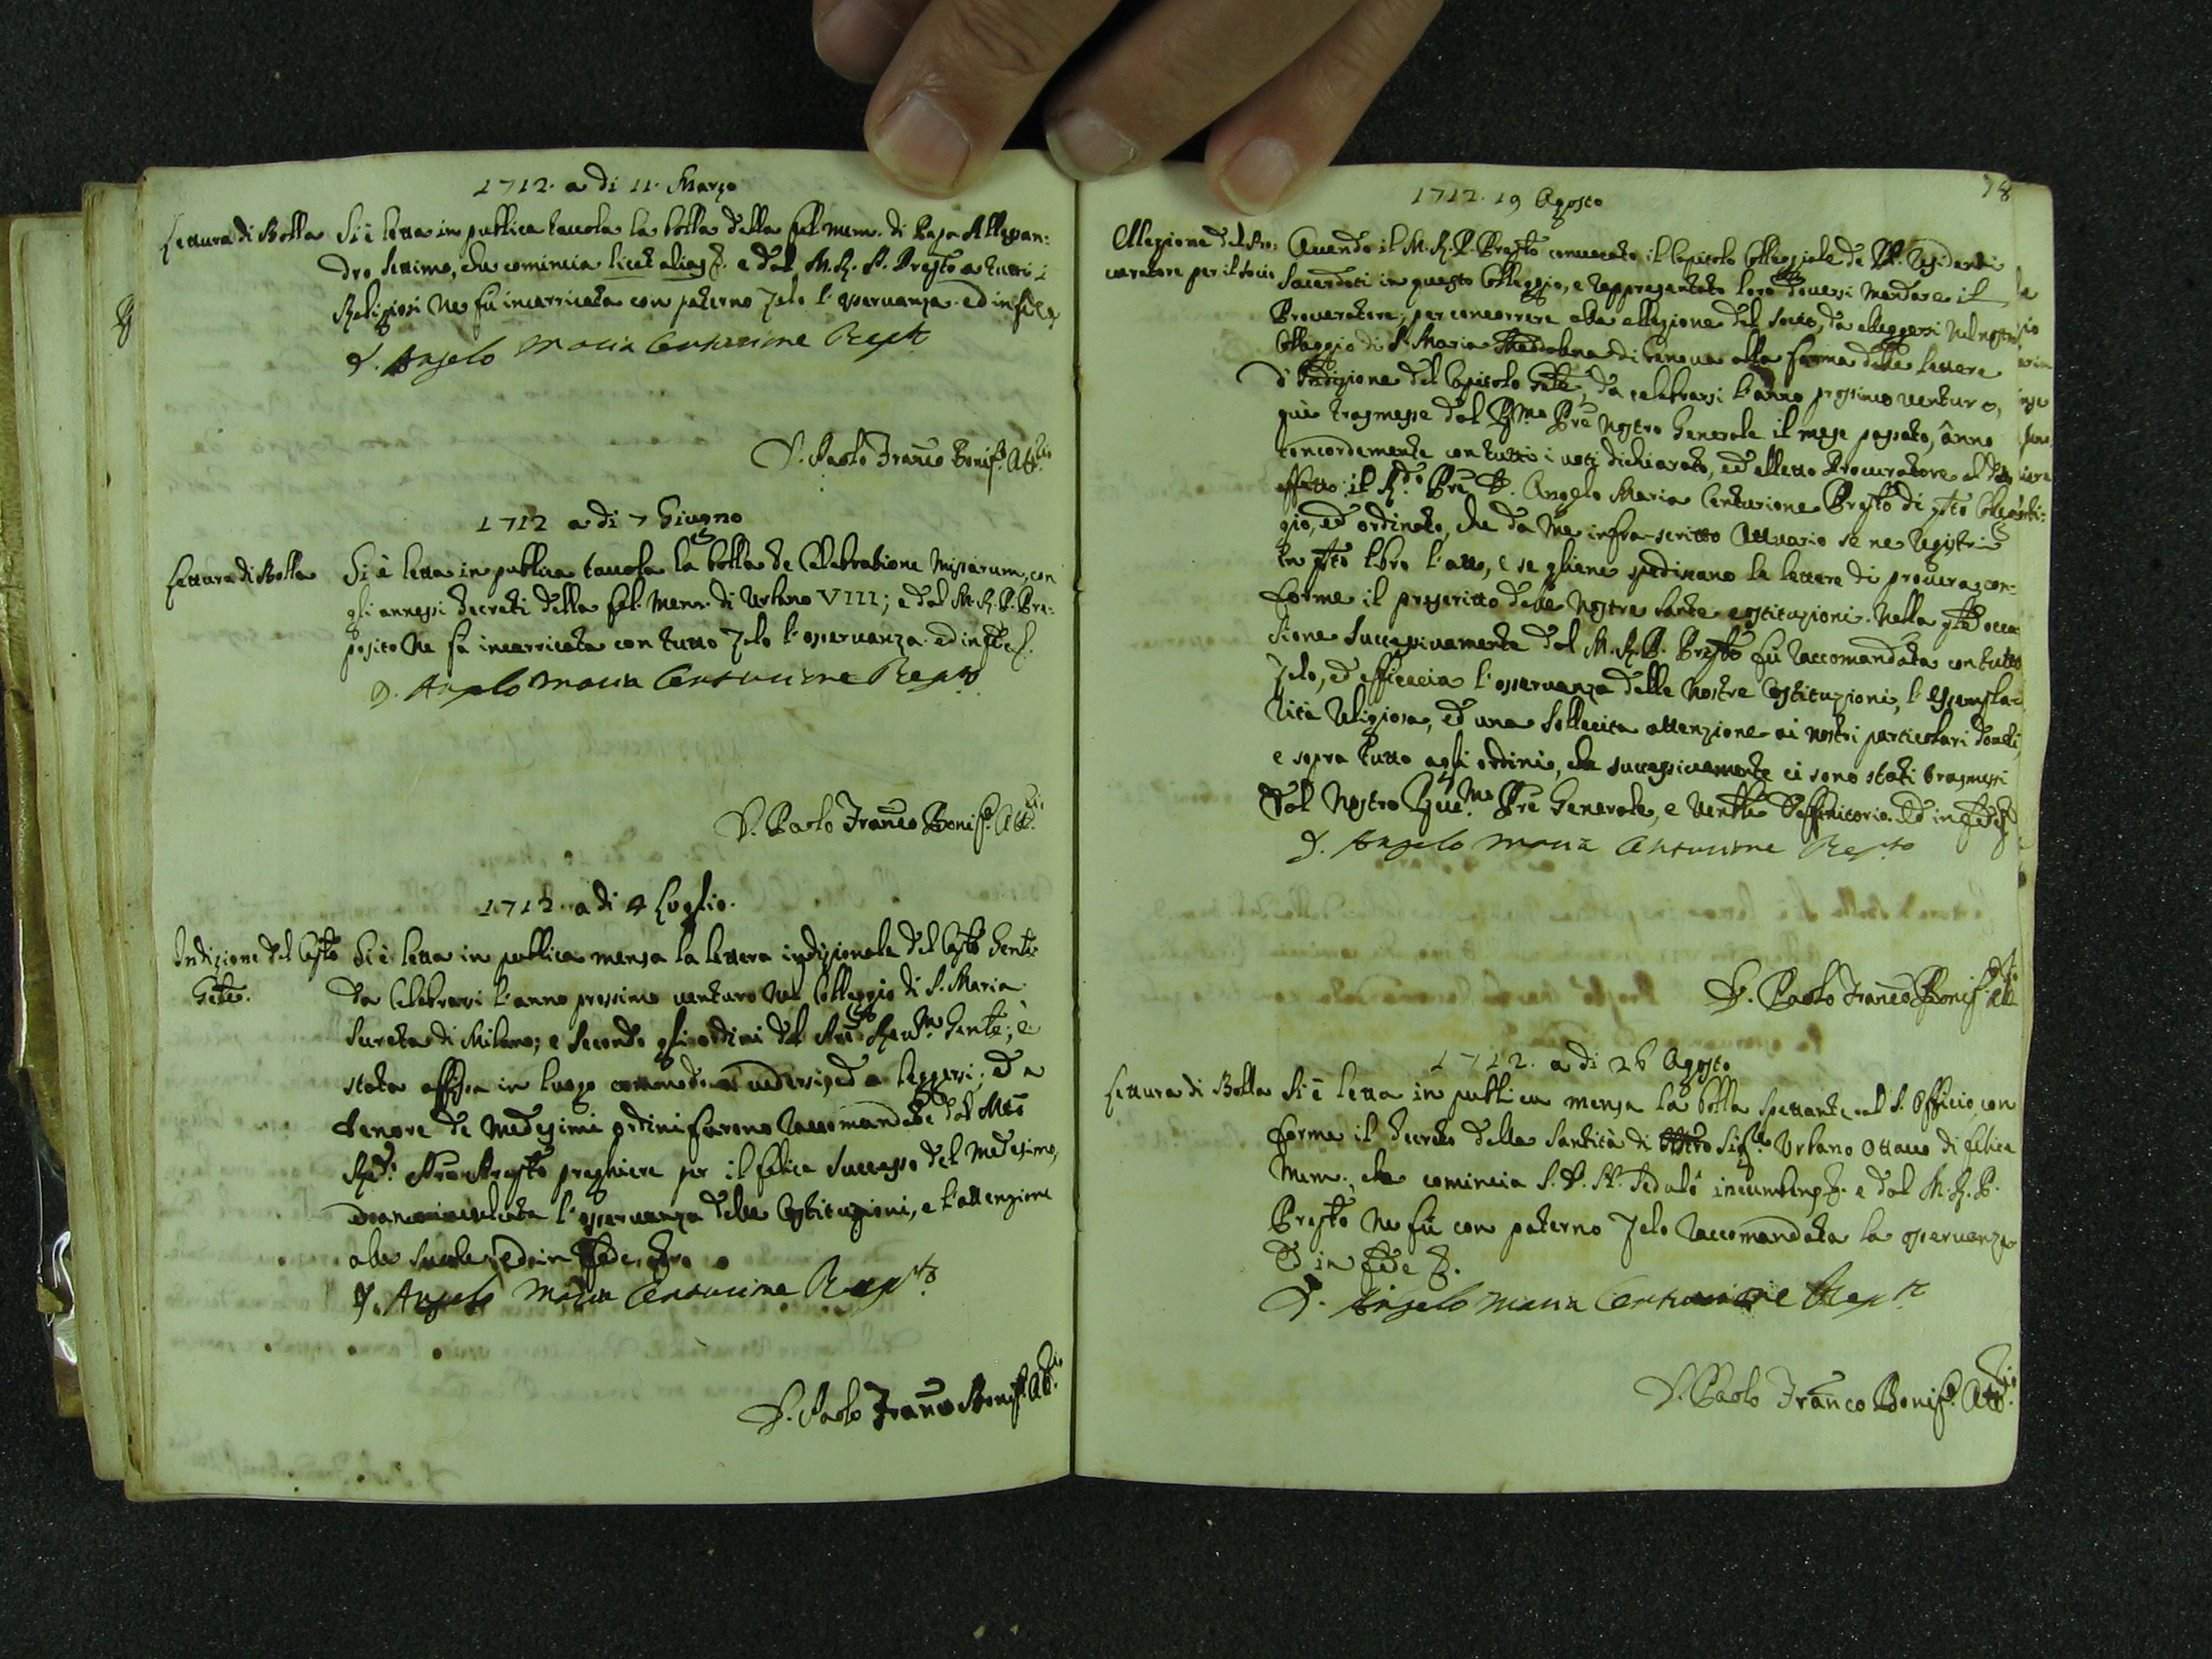 1712. a di 11. Marzo
Lettura di Bolla Si è letta in publica tavola la bolla della fel. mem. di Papa Allessan:
dro Settimo, che comincia licet alias &. e dal M. R. P. Prepto a tutti i
Religiosi ne fù incarricata con paterno zelo l'osservanza. ed in fede &
D. Angelo Maria Centurione Prepto
D. Paolo Franco Bonif.o Att.rio
1712 a di 7 Giugno
Lettura di Bolla Si è letta in publica tavola la bolla de Celebratione Missarum, con
gli annessi decreti della fel. mem. di Urbano VIII; e dal M. R. P. Pre:
posito ne fù incarricata con tutto zelo l'osservanza. ed in fede &.
D. Angelo Maria Centurione Prepto
D. Paolo Franco Bonif.o Att.rio
1712. a di 4 Luglio.
Indizione del Caplo Si è letta in publica mensa la lettera indizionale del Caplo Genle
Gnle. da Celebrarsi l'anno prossimo venturo nel Colleggio di S. Maria
Secreta di Milano; e secondo gli ordini del Rev.mo Genle, è
stata affissa in luogo commodo a vedersi, ed a leggersi; ed a
tenore de medesimi ordini furono raccomandate dal Mto
Rdo. Pre Prepto preghiere per il felice successo del medesimo,
l'osservanza delle Costituzioni, e l'attenzione
alle scuole, ed in fede &
D. Angelo Maria Centurione Prepto
D. Paolo Franco Bonif.o Att.rio
78
1712. 19 Agosto
Ellezione del Pro: Avendo il M. R. P. Prepto convocato il Capitolo Colleggiale de PP. Residenti
curatore per il Socio Sacerdoti in questo Colleggio, e rappresentato loro doversi mandare il
Procuratore, per concorrere alla ellezione del Socio, da elleggersi nel nostro
Colleggio di S. Maria Maddalena di Genova alla forma delle lettere
d'Indizione del Capitolo Gnle, da celebrarsi l'anno prossimo venturo,
quì trasmesse dal Rmo Pre Nostro Generale il mese passato, ànno
concordemente con tutti i voti dichiarato, ed elletto Procuratore al dto
effetto il Rdo Pre D. Angelo Maria Centurione Prepto di qsto Colleg
gio, ed ordinato, che da me infra-scritto Attuario se ne registri
in qsto libro l'atto, e se gliene spediscano le lettere di procura, con:
forme il prescritto delle nostre sante costituzioni. Nella qle occa
sione successivamente dal M. R. P. Prepto fù raccomandata con tutto
zelo, ed efficacia l'osservanza delle nostre Costituzioni, l'essempla:
rità religiosa, ed una sollecita attenzione ai nostri particolari doveri,
e sopra tutto agli ordini, che successivamente ci sono stati trasmessi
dal Nostro Rev.mo Pre Generale, e Venble Deffinitorio. Ed in fede &
D. Angelo Maria Centurione Prepto
D. Paolo Franco Bonif.o Att.rio
1712. a di 26 Agosto
Lettura di Bolla Si è letta in publica mensa la bolla spettante al S. Officio con
forme il decreto della Santità di Sigre Urbano Ottavo di felice
mem., che comincia S. D. N. Sedulò incumbens &. e dal M. R. P.
Prepto ne fù con paterno zelo raccomandata la osservanza
Ed in fede &.
D. Angelo Maria Centurione Prepto
D. Paolo Franco Bonif.o Att.rio